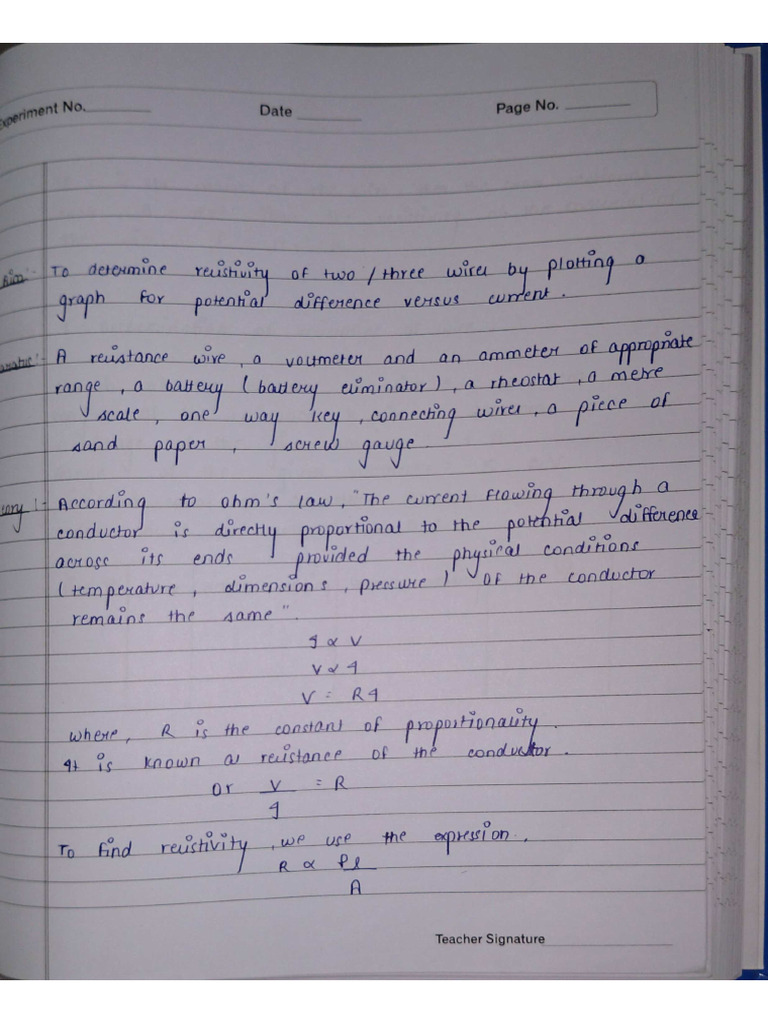 Experiment No. Date Page No.
Aim :- To determine resistivity of two / three wires by plotting a
graph for potential difference versus current.
A resistance wire, a voltmeter and an ammeter of appropriate
range, a battery (battery eliminator), a rheostat, a metre
scale, one way key, connecting wires, a piece of
sand paper, screw gauge.
:- According to ohm's law, "The current flowing through a
conductor is directly proportional to the potential difference
across its ends provided the physical conditions
(temperature, dimensions, pressure) of the conductor
remains the same".
I ∝ V
V ∝ I
V = RI
where, R is the constant of proportionality.
It is known as resistance of the conductor.
or V = R
I
To find resistivity, we use the expression,
R ∝ ρl
A
Teacher Signature